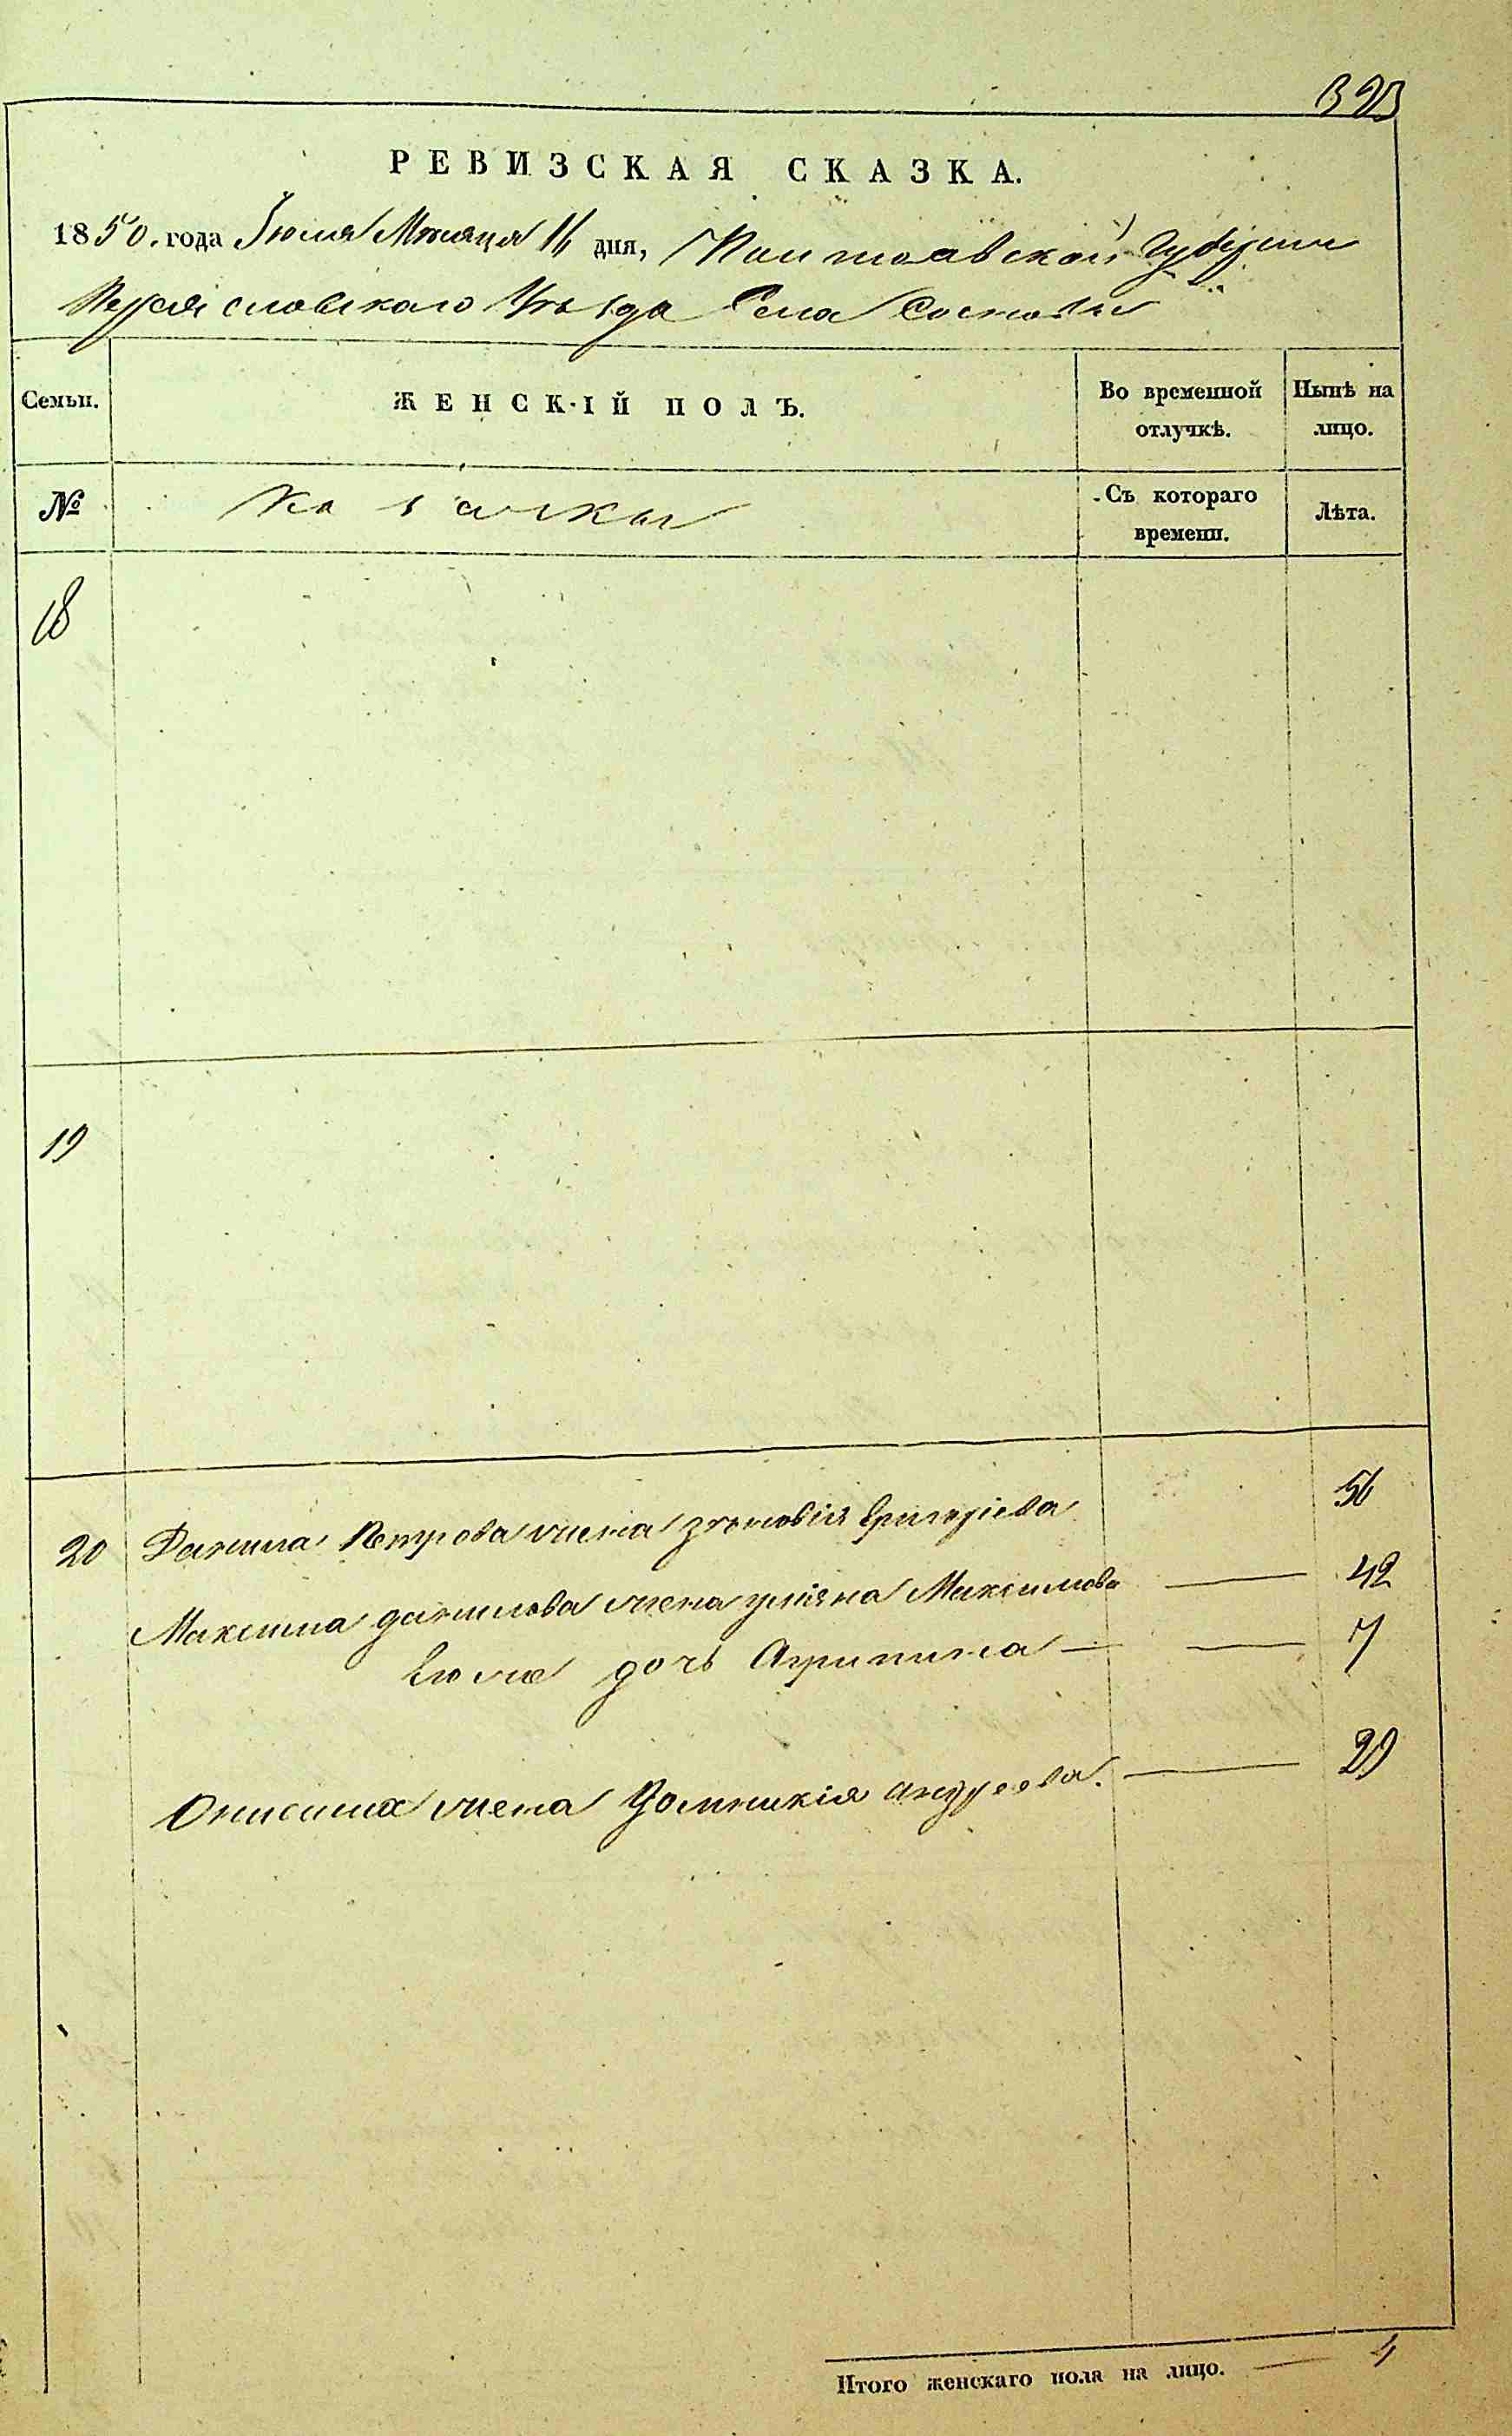 323
РЕВИЗСКАЯ СКАЗКА.
1850. года Іюля Мѣсяца 16 дня, Полтавской Губерніи
Переяславскаго Уѣзда Села Сосновы
Семьи.
ЖЕНСКІЙ ПОЛЪ.
Во временной отлучкѣ.
Нынѣ на лицо.
№
Казачки
Съ котораго времени.
Лѣта.
18
19
20 Данила Петрова жена Зѣновія Григоріева 56
Максима Данилова жена уліяна Максимова 42
его же дочь Агрипина 7
Онисима жена Домникія андреева. 29
Итого женскаго пола на лицо. 4